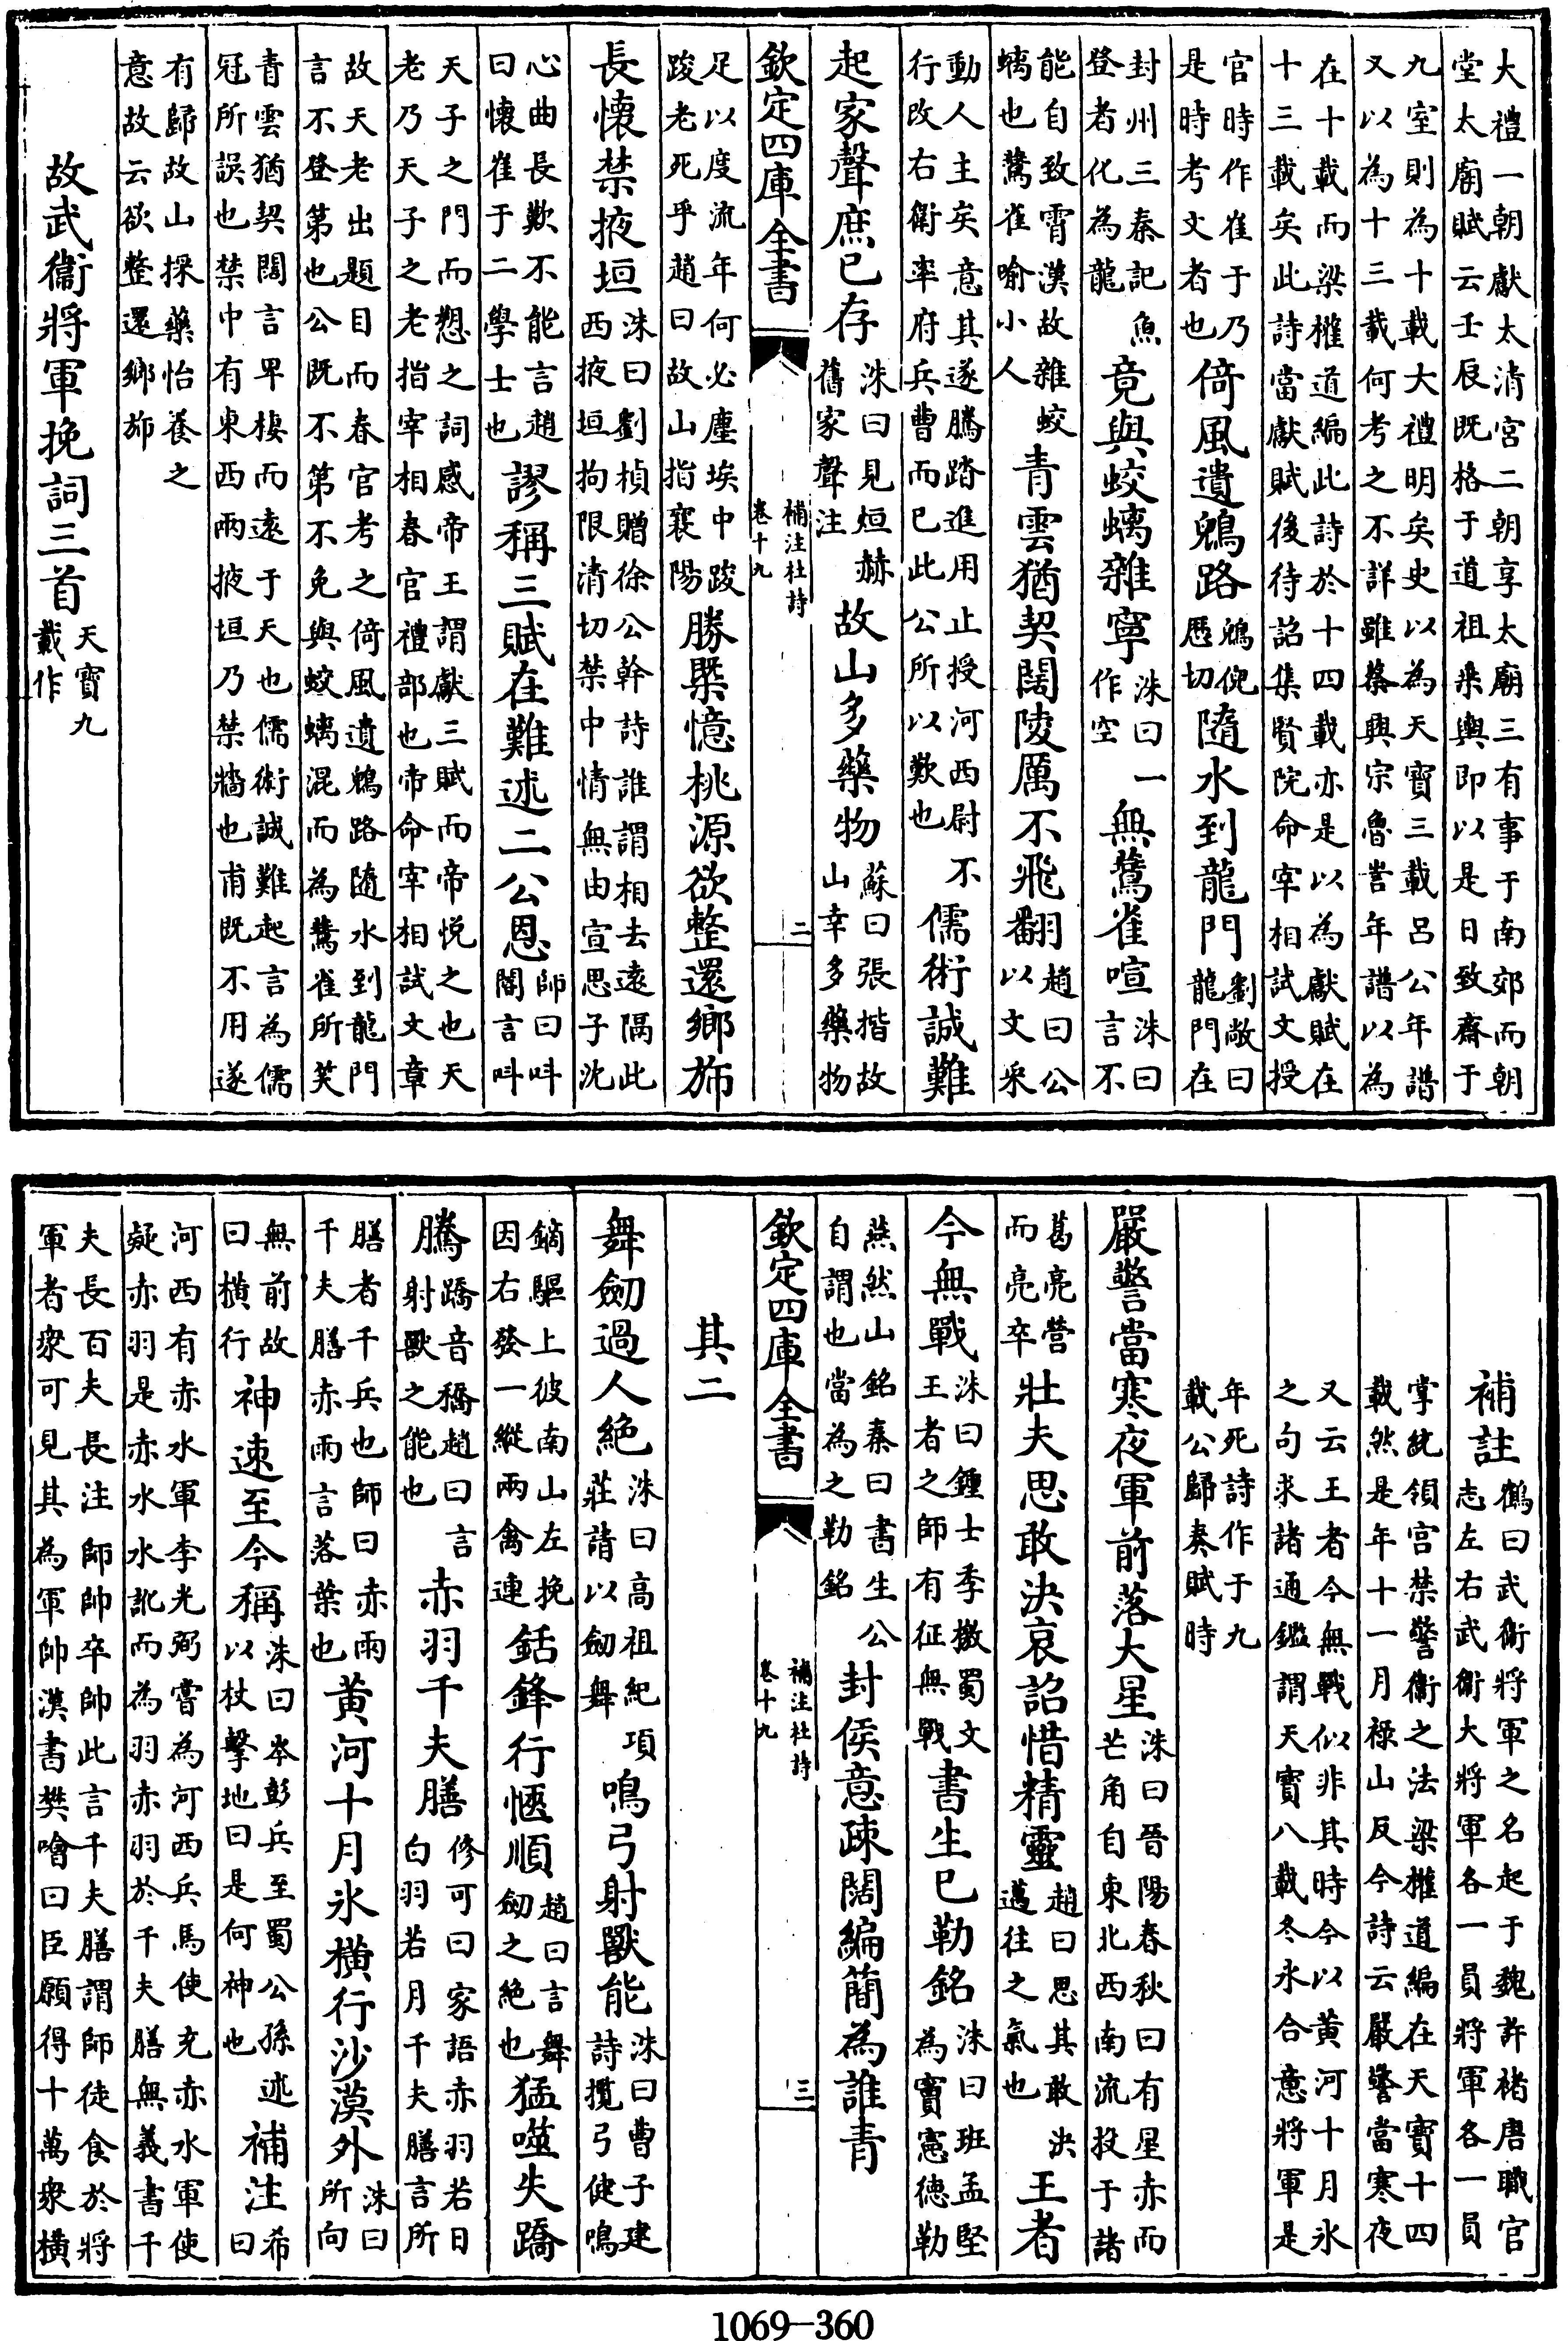 大禮一朝獻太清宮二朝享太廟三有事于南郊而朝
堂太廟賦云壬辰既格于道祖乘輿即以是日致齋于
九室則為十載大禮明矣史以為天寶三載呂公年譜
又以為十三載何考之不詳雖蔡興宗魯訔年譜以為
在十載而梁權道編此詩於十四載亦是以為獻賦在
十三載矣此詩當獻賦後待詔集賢院命宰相試文授
官時作崔于乃是時考文者也倚風遺鶂路鶂倪歷切隨水到龍門劉敞曰龍門在
封州三秦記魚登者化為龍竟與蛟螭雜寧洙曰一作空無鷰雀喧洙曰言不
能自致霄漢故雜蛟螭也鷰雀喻小人青雲猶契闊陵厲不飛翻趙曰公以文采
動人主矣意其遂騰踏進用止授河西尉不行改右衛率府兵曹而已此公所以歎也儒術誠難
起家聲庶已存洙曰見烜赫舊家聲注故山多藥物蘇曰張揩故山幸多藥物
欽定四庫全書 補注杜詩 卷十九 二
足以度流年何必塵埃中踆踆老死乎趙曰故山指襄陽勝槩憶桃源欲整還鄉斾
長懷禁掖垣洙曰劉楨贈徐公幹詩誰謂相去遠隔此西掖垣拘限清切禁中情無由宣思子沈
心曲長歎不能言趙曰懷崔于二學士也謬稱三賦在難述二公恩師曰叫閽言叫
天子之門而愬之詞感帝王謂獻三賦而帝悅之也天
老乃天子之老指宰相春官禮部也帝命宰相試文章
故天老出題目而春官考之倚風遺鶂路隨水到龍門
言不登第也公既不第不免與蛟螭混而為鷰雀所笑
青雲猶契闊言卑棲而遠于天也儒術誠難起言為儒
冠所誤也禁中有東西兩掖垣乃禁牆也甫既不用遂
有歸故山採藥怡養之
意故云欲整還鄉斾
故武衛將軍挽詞三首天寶九載作
補註鶴曰武衛將軍之名起于魏許褚唐職官志左右武衛大將軍各一員將軍各一員
掌統領宮禁警衛之法梁權道編在天寶十四
載然是年十一月祿山反今詩云嚴警當寒夜
又云王者今無戰似非其時今以黃河十月氷
之句求諸通鑑謂天寶八載冬氷合意將軍是
年死詩作于九
載公歸奏賦時
嚴警當寒夜軍前落大星洙曰晉陽春秋曰有星赤而芒角自東北西南流投于諸
葛亮營而亮卒壯夫思敢決哀詔惜精靈趙曰思其敢決邁往之氣也王者
今無戰洙曰鍾士季檄蜀文王者之師有征無戰書生已勒銘洙曰班孟堅為竇憲德勒
燕然山銘秦曰書生公自謂也當為之勒銘封侯意疎闊編簡為誰青
欽定四庫全書 補注杜詩 卷十九 三
其二
舞劒過人絶洙曰高祖紀項莊請以劒舞鳴弓射獸能洙曰曹子建詩攬弓健鳴
鏑驅上彼南山左挽因右發一縱兩禽連銛鋒行愜順趙曰言舞劒之絶也猛噬失蹻
騰蹻音橋趙曰言射獸之能也赤羽千夫膳修可曰家語赤羽若日白羽若月千夫膳言所
膳者千兵也師曰赤雨千夫膳赤雨言落葉也黃河十月氷橫行沙漠外洙曰所向
無前故曰橫行神速至今稱洙曰岑彭兵至蜀公孫述以杖擊地曰是何神也補注希曰
河西有赤水軍李光弼嘗為河西兵馬使充赤水軍使
疑赤羽是赤水水訛而為羽赤羽於千夫膳無義書千
夫長百夫長注師帥卒帥此言千夫膳謂師徒食於將
軍者衆可見其為軍帥漢書樊噲曰臣願得十萬衆橫
1069-360